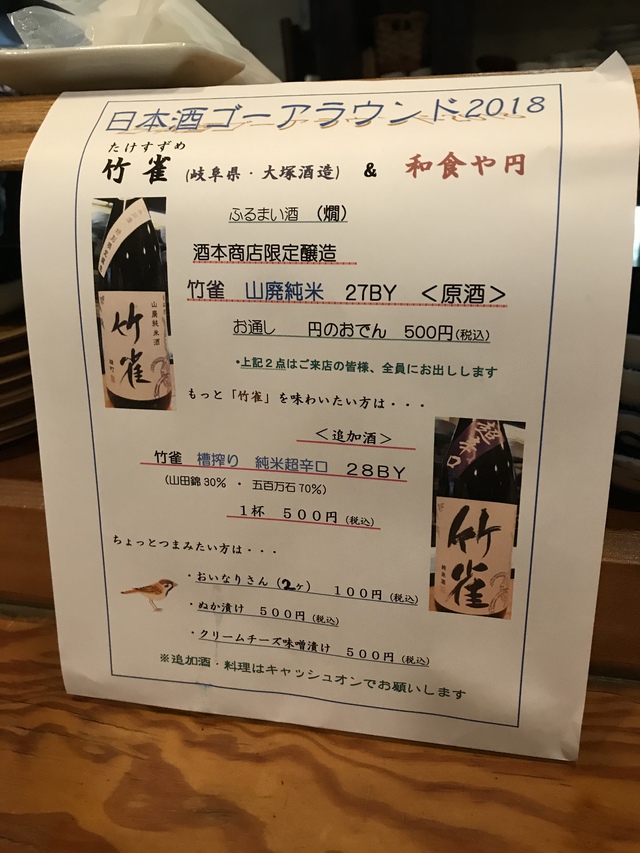 日本酒ゴーアラウンド2018
たけすずめ
竹雀 (岐阜県・大塚酒造) & 和食や円
ふるまい酒 (燗)
酒本商店限定醸造
竹雀 山廃純米 27BY <原酒>
お通し 円のおでん 500円(税込)
・上記2点はご来店の皆様、全員にお出しします
もっと「竹雀」を味わいたい方は・・・
<追加酒>
竹雀 槽搾り 純米超辛口 28BY
(山田錦30% ・ 五百万石70%)
1杯 500円(税込)
ちょっとつまみたい方は・・・
・おいなりさん(2ヶ) 100円(税込)
・ぬか漬け 500円(税込)
・クリームチーズ味噌漬け 500円(税込)
※追加酒・料理はキャッシュオンでお願いします
山廃純米酒
竹雀
超辛口
竹雀
純米酒